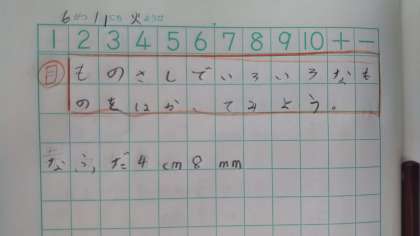 6がつ11にち火よう日
1 2 3 4 5 6 7 8 9 10 + −
目 ものさしでいろいろなも
のをはかってみよう。
なふだ 4cm8mm